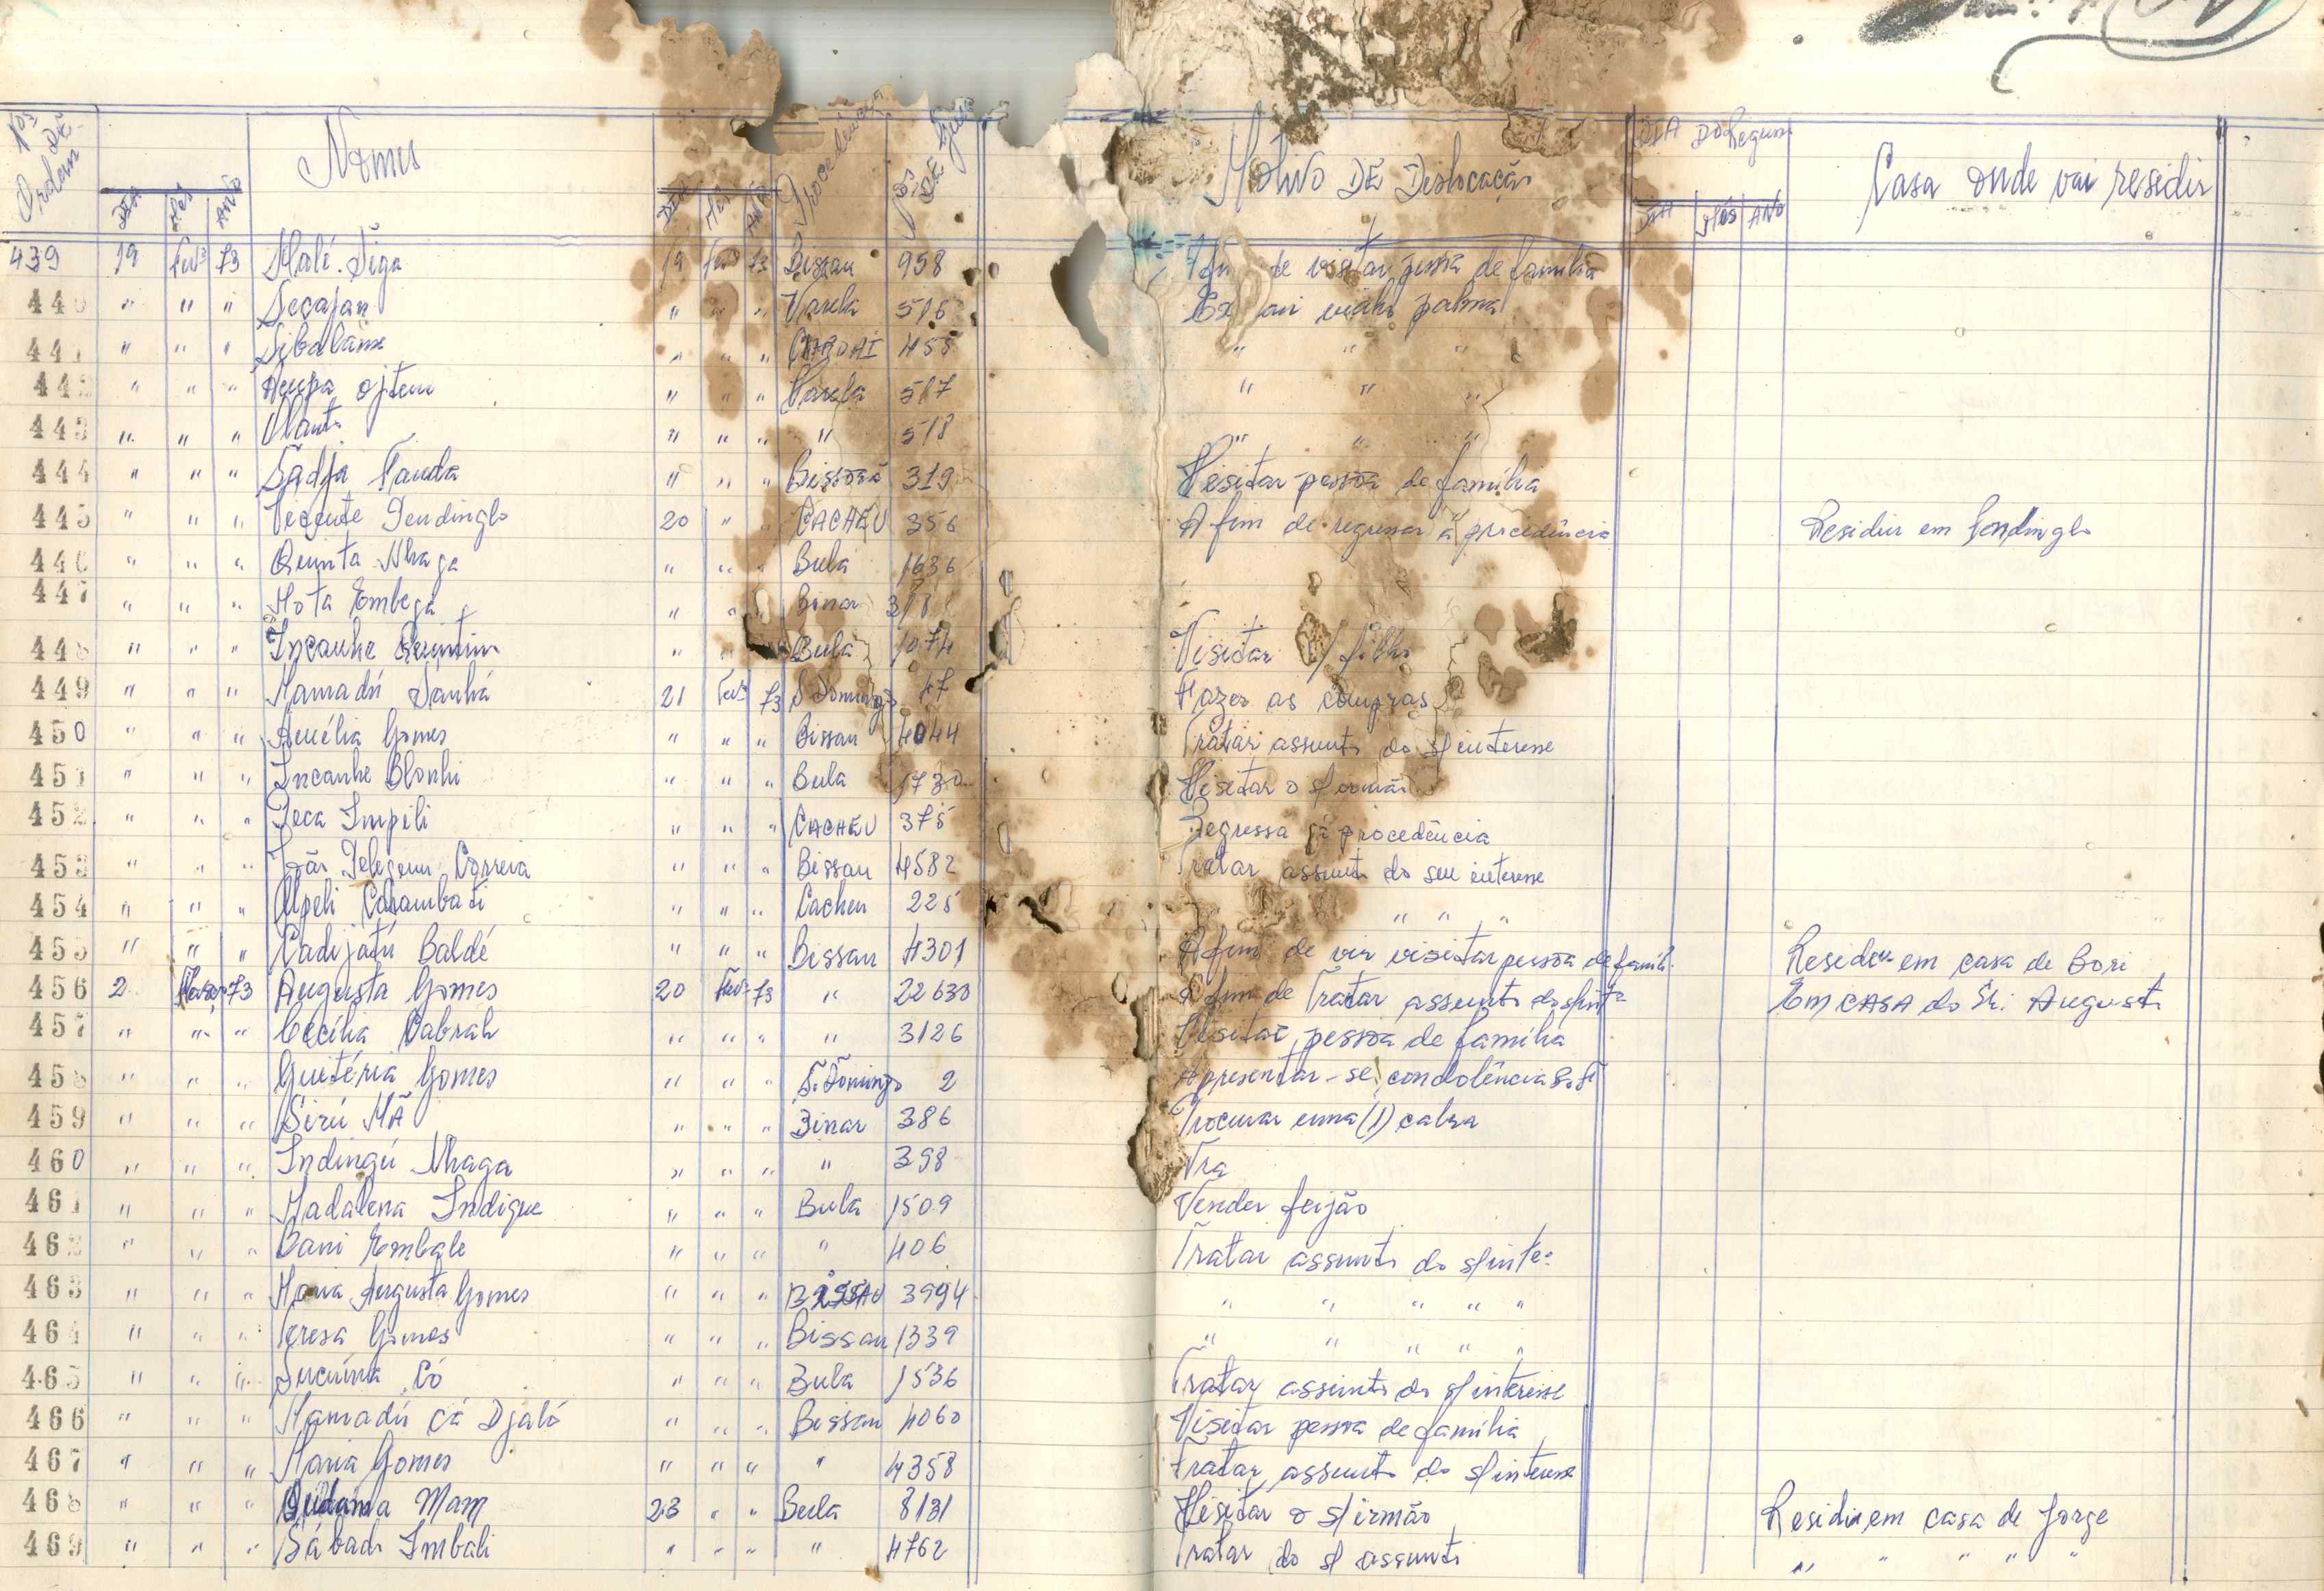 Nos DE Ordem DIA MÊS ANO Nomes DIA MÊS ANO Procedência Nos DE Guia Motivo DE Deslocação DIA DO Regresso DIA MÊS ANO Casa onde vai residir
439 19 Fevº 73 Mali Siga 19 Fevº 73 Bissau 958 Afim de visitar pessoa de familia
440 " " " Seçajan " " " Varela 516 palma
441 " " " " " " 455 " " "
442 " " " ojtem " " " Varela 517 " " "
443 " " " " " " " 518 " " "
444 " " " Sadja Fanda " " " Bissorã 319 Visitar pessoa de família
445 " " " Vicente Gendinglo 20 " " CACHEU 356 A fim de regressar à procedência Residir em Gendinglo
446 " " " Quinta Nhaga " " " Bula 1636
447 " " " Mota Embega " " Binar 318
448 " " " Incanhe Quintino " " Bula 1074 Visitar s/ filho
449 " " " Mamadú Danhá 21 Fevº 73 S. Domingos 47 Fazer as compras
450 " " " Amélia Gomes " " " Bissau 4044 Tratar assunto do s/ interesse
451 " " " Incanhe Blonhi " " " Bula 1730 Visitar o s/ irmão
452 " " " Zeca Impili " " " CACHEU 375 Regressa à procedência
453 " " " João Correia " " " Bissau 4582 Tratar assunto do seu interesse
454 " " " Upeli Carambati " " " Cacheu 225 " " "
455 " " " Cadijatú Baldé " " " Bissau 4301 A fim de vir visitar pessoa de famíl. Residir em casa de Bori
456 2 Março 73 Augusta Gomes 20 Fevº 73 " 22630 A fim de Tratar assunto do s/intº Em CASA do Sr. Augusto
457 " " " Cecília Cabrah " " " " 3126 Visitar pessoa de família
458 " " " Guitéria Gomes " " " S. Domingo 2 Apresentar-se condolência
459 " " " Sirú MÃ " " " Binar 386 Procurar uma (1) cabra
460 " " " Indingú Nhaga " " " " 398 Tra
461 " " " Madalena Indigue " " " Bula 1509 Vender feijão
462 " " " Dani Embale " " " " 406 Tratar assunto do s/inte:
463 " " " Maria Augusta Gomes " " " BISSAU 3994 " " " " "
464 " " " Teresa Gomes " " " Bissau 1339 " " " " "
465 " " " Sucuma Có " " " Bula 1536 Tratar assunto do s/interesse
466 " " " Mamadú Cá Djaló " " " Bissau 4060 Visitar pessoa de família
467 " " " Maria Gomes " " " " 4358 Tratar assunto do s/interesse
468 " " " Mam 23 " " Bula 8131 Visitar o s/irmão Residir em casa de Jorge
469 " " " Sábado Imbali " " " " 4762 Tratar do s/ assunto " " " " "